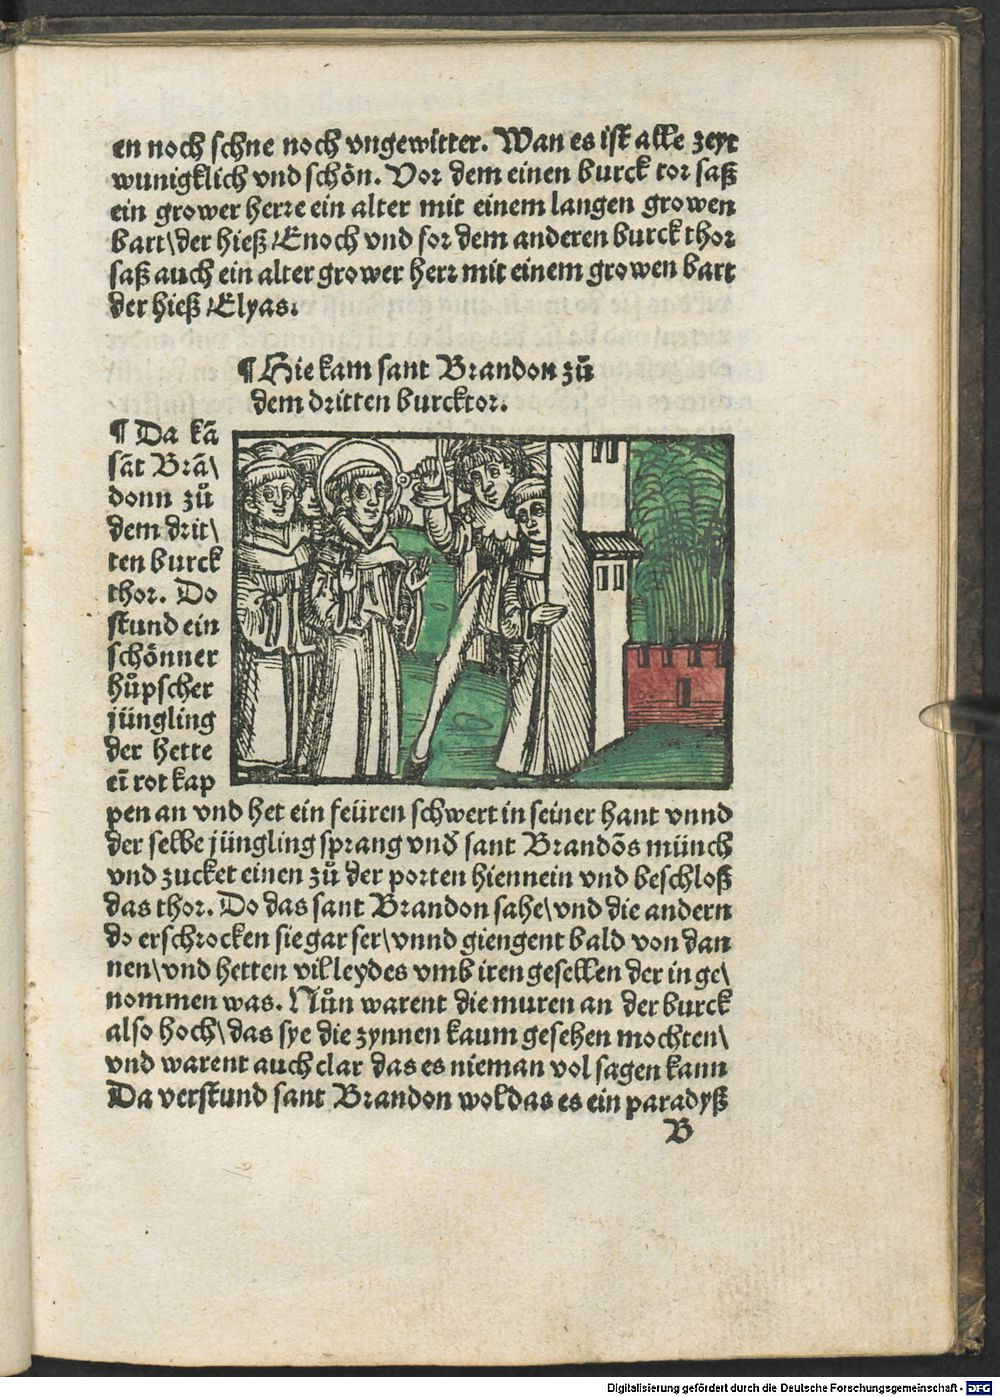 en noch schne noch vngewitter. Wan es ist alle zeyt
wunigklich vnd schön. Vor dem einen burck tor saß
ein grower herre ein alter mit einem langen growen
bart\der hieß Enoch vnd for dem anderen burck thor
saß auch ein alter grower herr mit einem growen bart
der hieß Elyas.
¶ Hie kam sant Brandon zů
dem dritten burcktor.
¶ Da kã
sãt Brã\
donn zů
dem drit\
ten burck
thor. Do
stund ein
schönner
hůpscher
jüngling
der hette
eĩ rot kap
pen an vnd het ein feüren schwert in seiner hant vnnd
der selbe jüngling sprang vnd̄ sant Brandõs münch
vnd zucket einen zů der porten hiennein vnd beschloß
das thor. Do das sant Brandon sahe\vnd die andern
do erschrocken sie gar ser\vnnd giengent bald von dan
nen\vnd hetten vil leydes vmb iren gesellen der in ge\
nommen was. Nůn warent die muren an der burck
also hoch\das sye die zynnen kaum gesehen mochten\
vnd warent auch clar das es nieman vol sagen kann
Da verstund sant Brandon wol das es ein paradyß
B
Digitalisierung gefördert durch die Deutsche Forschungsgemeinschaft - DFG